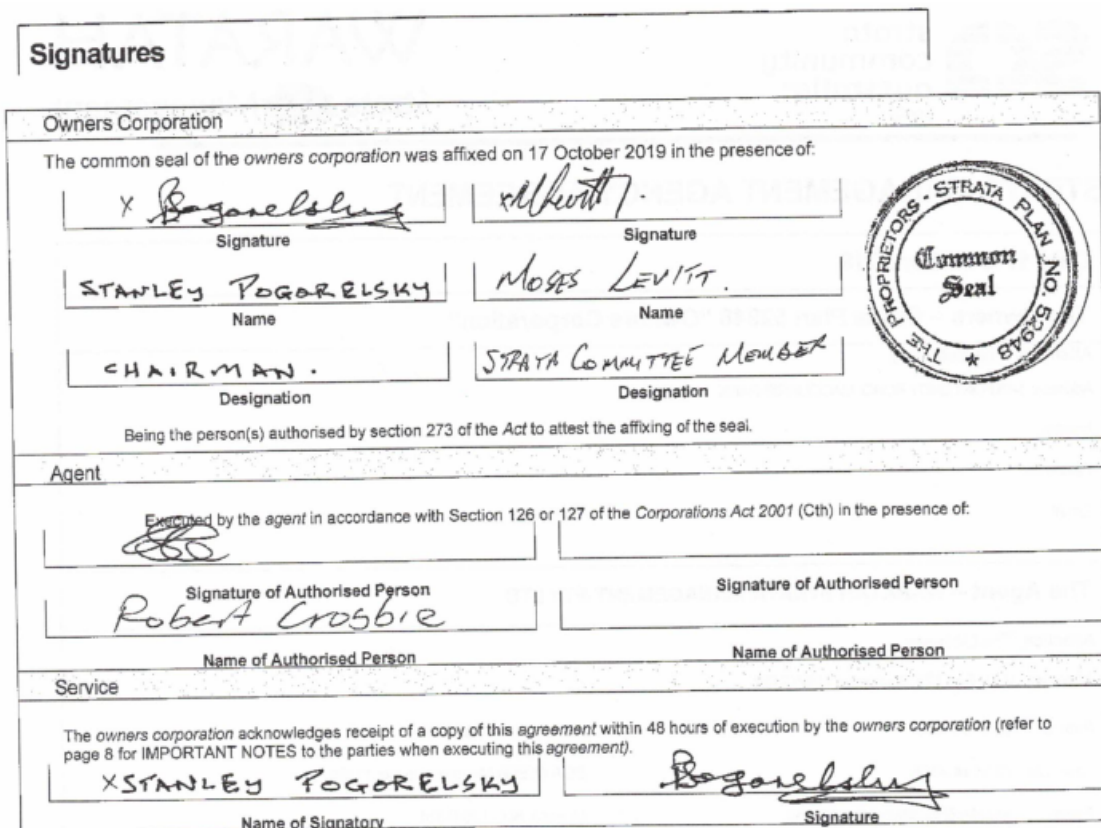 Signatures
Owners Corporation
The common seal of the owners corporation was affixed on 17 October 2019 in the presence of:
x
Signature
Signature
STANLEY POGORELSKY
MOSES LEVITT.
Name
Name
CHAIRMAN.
STRATA COMMITTEE MEMBER
Designation
Designation
THE PROPRIETORS - STRATA PLAN NO. 52948 *
Common
Seal
Being the person(s) authorised by section 273 of the Act to attest the affixing of the seal.
Agent
Executed by the agent in accordance with Section 126 or 127 of the Corporations Act 2001 (Cth) in the presence of:
Signature of Authorised Person
Signature of Authorised Person
Robert Crosbie
Name of Authorised Person
Name of Authorised Person
Service
The owners corporation acknowledges receipt of a copy of this agreement within 48 hours of execution by the owners corporation (refer to
page 8 for IMPORTANT NOTES to the parties when executing this agreement).
XSTANLEY POGORELSKY
Name of Signatory
Signature